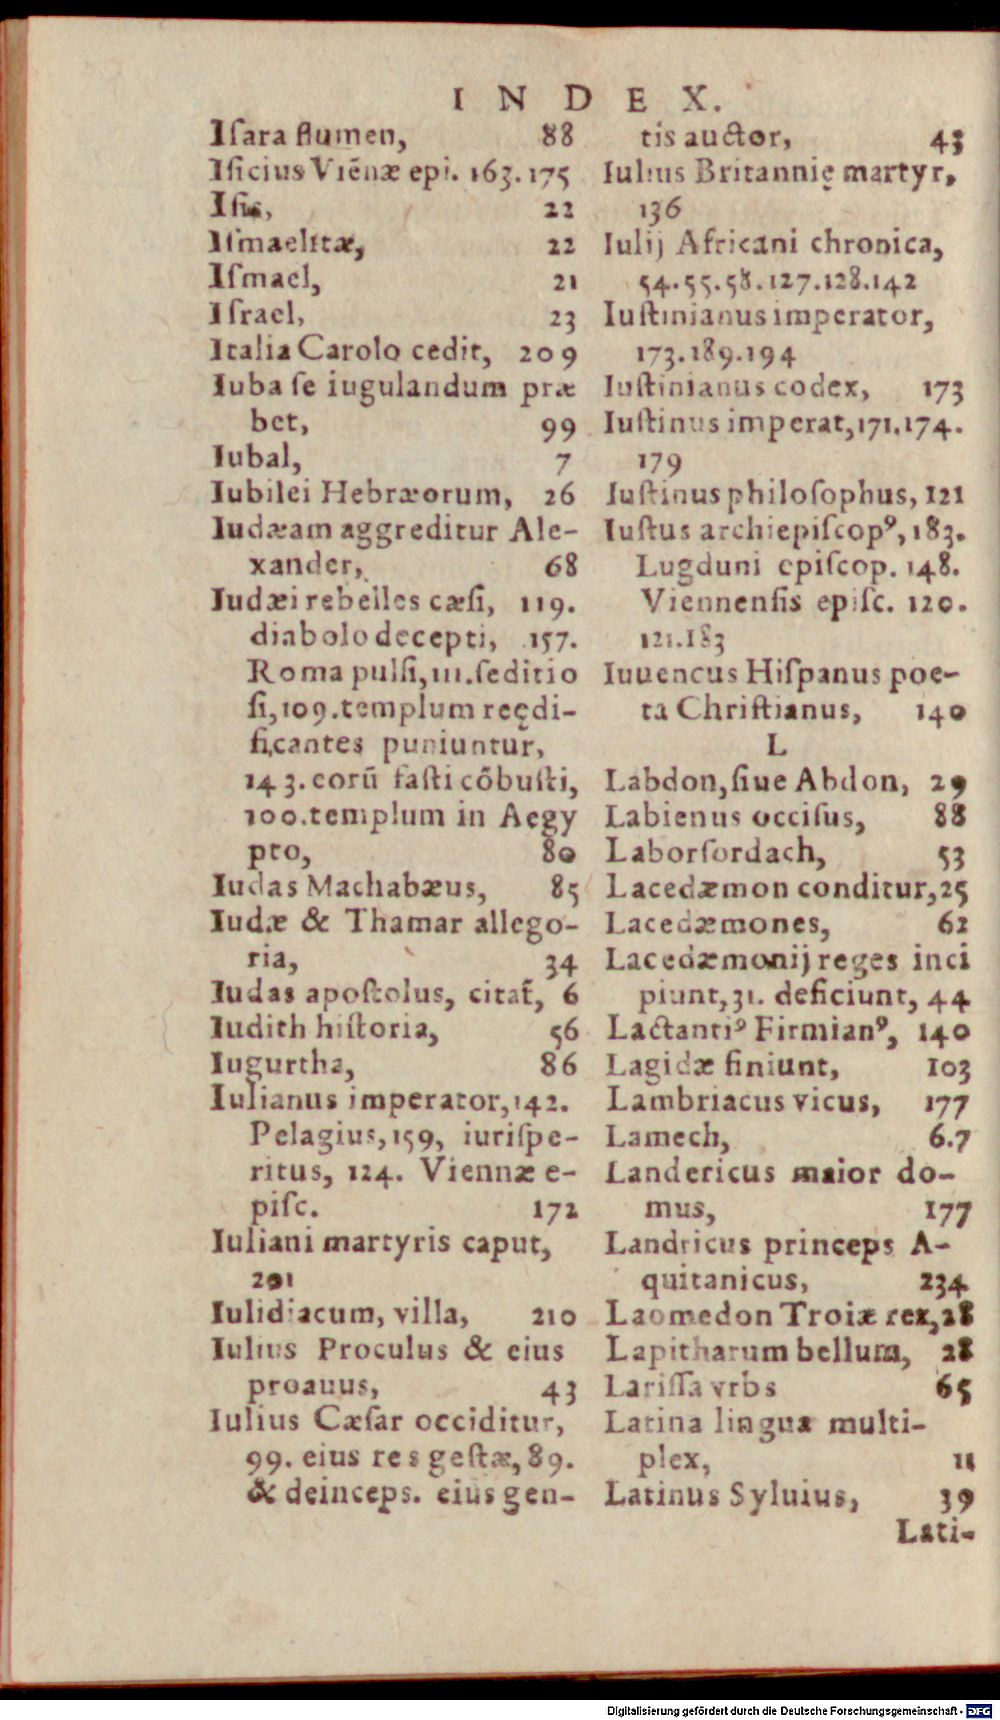 INDEX.
Iſara flumen, 88
Iſicius Viēnæ epi. 163.175
Iſis, 22
Iſmaelitæ, 22
Iſmael, 21
Iſrael, 23
Italia Carolo cedit, 209
Iuba ſe iugulandum præ
bet, 99
Iubal, 7
Iubilei Hebræorum, 26
Iudæam aggreditur Ale-
xander, 68
Iudæi rebelles cæſi, 119.
diabolo decepti, 157.
Roma pulſi, 111. ſeditio
ſi, 109. templum reędi-
ficantes puniuntur,
143. eorū faſti cōbuſti,
100. templum in Aegy
pto, 80
Iudas Machabæus, 85
Iudæ & Thamar allego-
ria, 34
Iudas apoſtolus, citat̄, 6
Iudith hiſtoria, 56
Iugurtha, 86
Iulianus imperator, 142.
Pelagius, 159, iuriſpe-
ritus, 124. Viennæ e-
piſc. 172
Iuliani martyris caput,
201
Iulidiacum, villa, 210
Iulius Proculus & eius
proauus, 43
Iulius Cæſar occiditur,
99. eius res geſtæ, 89.
& deinceps. eius gen-
tis auctor, 43
Iulius Britannię martyr,
136
Iulij Africani chronica,
54.55.58.127.128.142
Iuſtinianus imperator,
173.189.194
Iuſtinianus codex, 173
Iuſtinus imperat, 171.174.
179
Iuſtinus philoſophus, 121
Iuſtus archiepiſcopꝰ, 183.
Lugduni epiſcop. 148.
Viennenſis epiſc. 120.
121.183
Iuuencus Hiſpanus poe-
ta Chriſtianus, 140
L
Labdon, ſiue Abdon, 29
Labienus occiſus, 88
Laborſordach, 53
Lacedæmon conditur, 25
Lacedæmones, 62
Lacedæmonij reges inci
piunt, 31. deficiunt, 44
Lactantiꝰ Firmianꝰ, 140
Lagidæ finiunt, 103
Lambriacus vicus, 177
Lamech, 6.7
Landericus maior do-
mus, 177
Landricus princeps A-
quitanicus, 234
Laomedon Troiæ rex, 28
Lapitharum bellum, 28
Lariſſa vrbs 65
Latina lingua multi-
plex, 11
Latinus Syluius, 39
Lati-
Digitalisierung gefördert durch die Deutsche Forschungsgemeinschaft - DFG